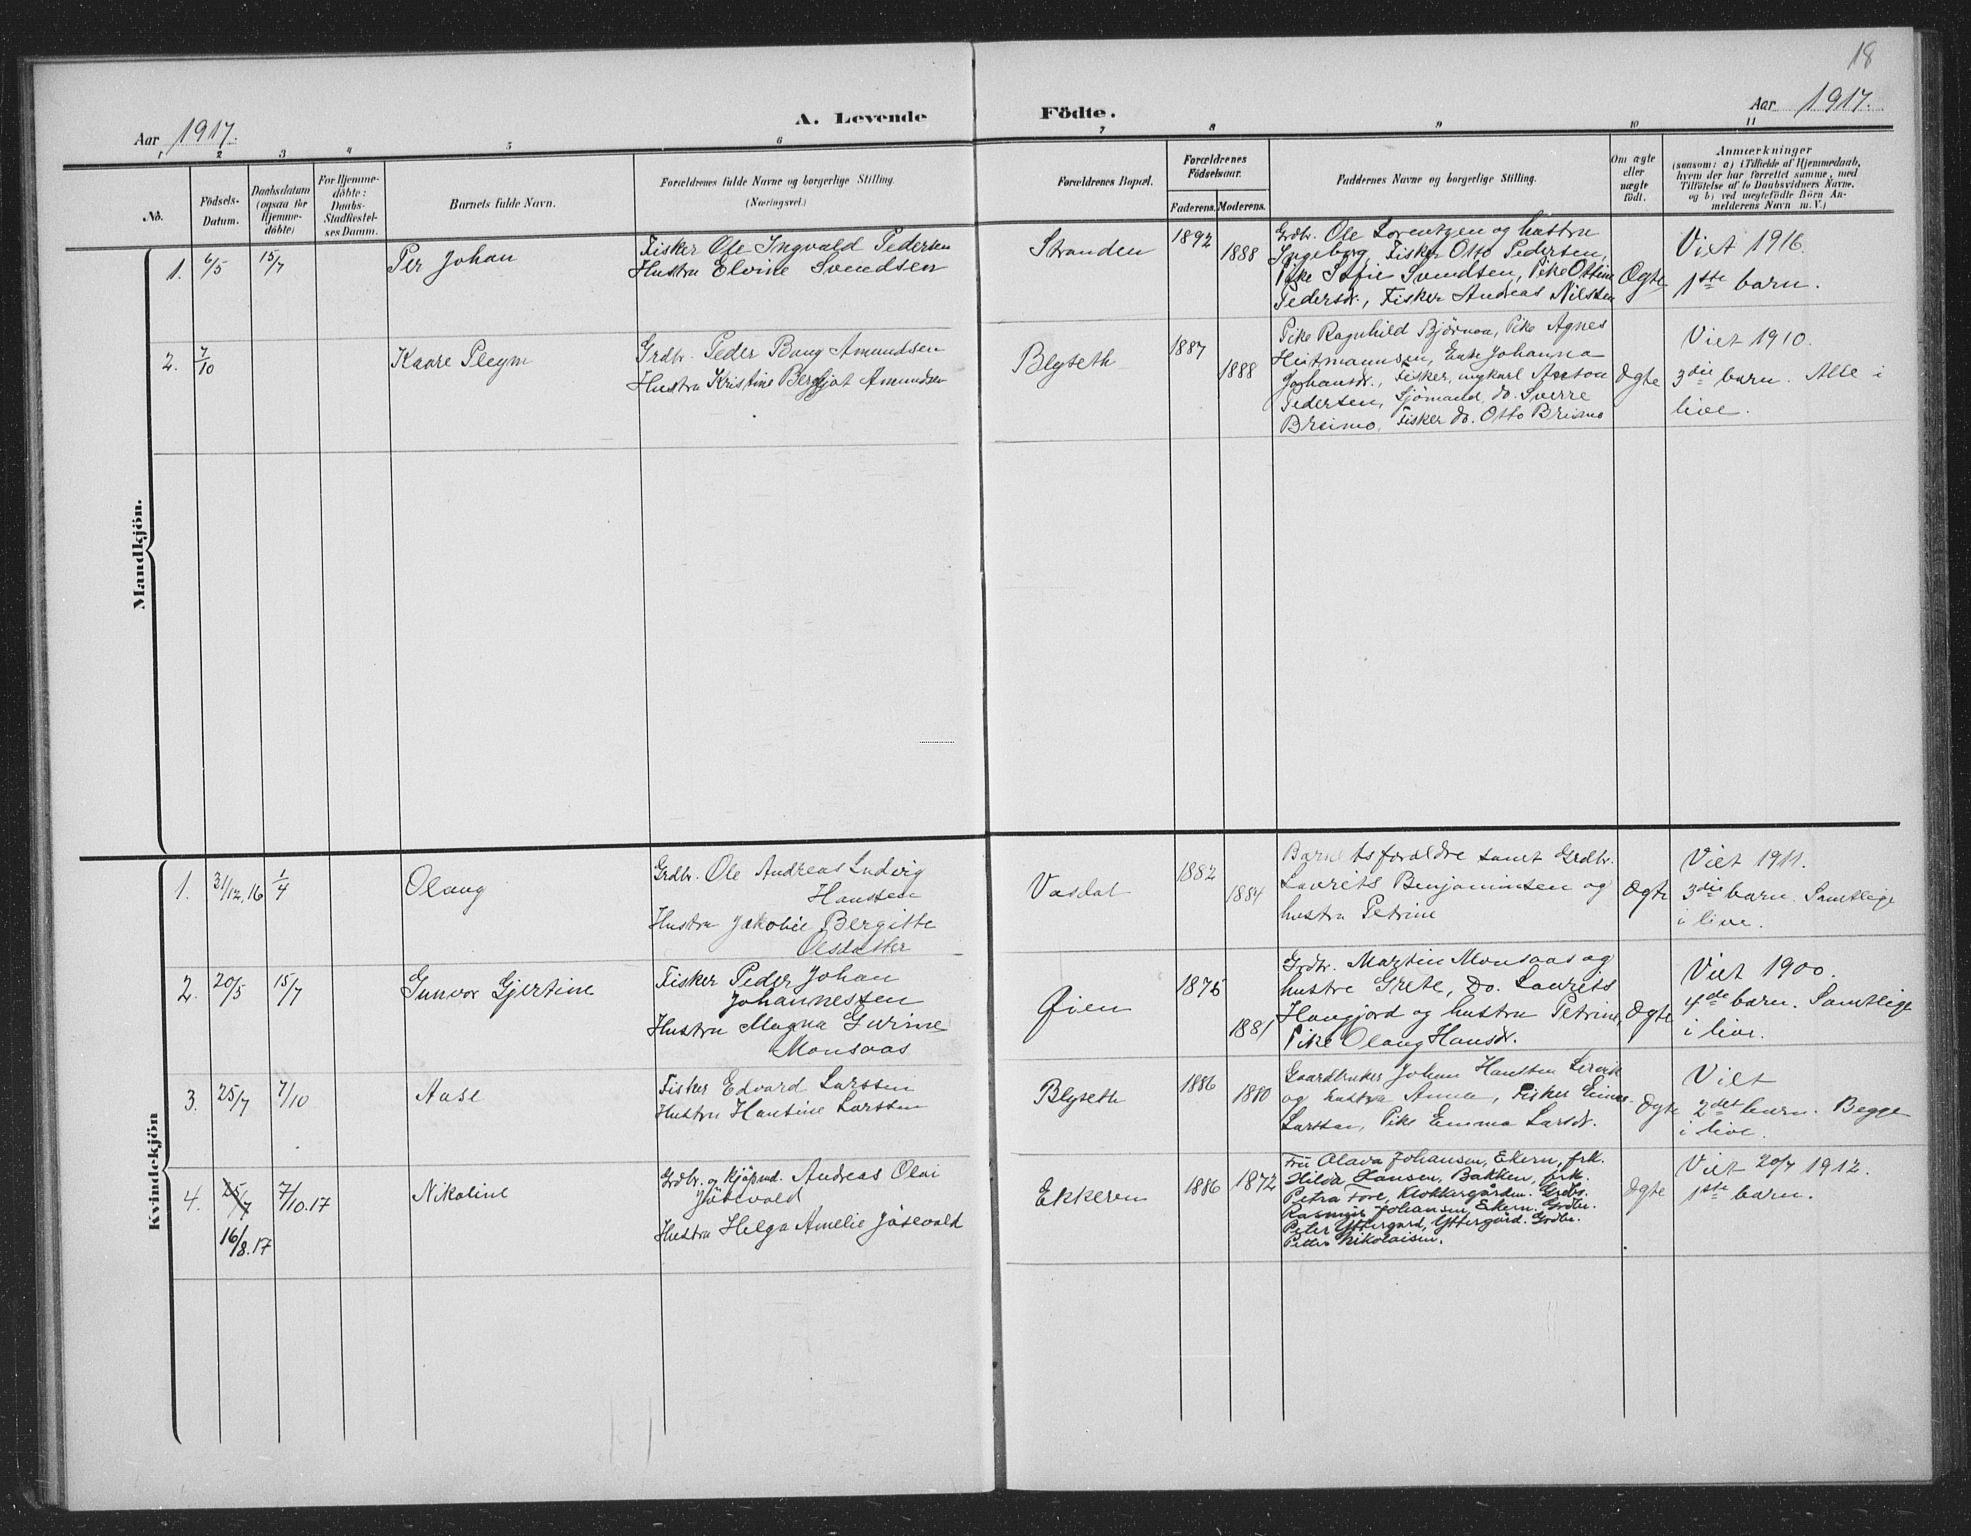 18
Aar 1917.
A. Levende Födte.
Aar 1917.
1 2 3 4 5 6 7 8 9 10 11
No.
Födsels-
Datum.
Daabsdatum
(ogsaa for
Hjemme-
döbte)
For Hjemme-
döbte:
Daabs-
Stadfæstel-
ses Datum.
Barnets fulde Navn.
Forældrenes fulde Navne og borgerlige Stilling.
(Næringsvei.)
Forældrenes Bopæl.
Forældrenes
Födselsaar.
Faderens. Moderens.
Faddernes Navne og borgerlige Stilling.
Om ægte
eller
uægte
født.
Anmærkninger
(saasom: a) i Tilfælde af Hjemmedaab,
hvem der har forrettet samme, med
Tilföielse af to Daabsvidners Navne.
og b) ved uægtefödte Börn An-
melderens Navn m. V.)
Mandkjön.
1. 6/5 15/7
Per Johan
Fisker Ole Ingvald Pedersen
Hustru Elvine Svendsen
Stranden
1892
1888
Grdbr. Ole Lorentzen og hustru
Ingeborg, Fisker Otto Pedersen,
Pike Sofie Svendsen, Pike Ottine
Pedersdr., Fisker Andreas Nilsen
Ægte
Viet 1916
1ste barn.
2. 7/10
Kaare Pleym
Grdbr. Peder Bang Amundsen
Hustru Kristine Bergljot Amundsen
Blyseth
1887
1888
Pike Ragnhild Bjørnaa, Pike Agnes
Heitmannsen, Enke Johanna
Johansdr., Fisker, ungkarl Anton
Pedersen, Sjømand, do. Sverre
Breimo, Fisker do. Otto Breimo
Ægte
Viet 1910.
3die barn. Alle i
live.
Kvindekjön
1. 31/12.16 1/4
Olaug
Grdbr. Ole Andreas Ludvig
Hanssen
Hustru Jakobie Bergitte
Olsdatter
Vasdal
1882
1884
Barnets forældre samt Grdbr.
Laurits Benjaminsen og
hustru Petrine
Ægte
Viet 1911.
3die barn. Samtlige
i live.
2. 20/5 15/7
Gunvor Gjertine
Fisker Peder Johan
Johannessen
Hustru Magna Gurine
Monsaas
Øien
1875
1881
Grdbr. Martin Monsaas og
hustru Grete, Do. Laurits
Haugjord og hustru Petrine,
Pike Olaug Hansdr.
Ægte
Viet 1900.
4de barn. Samtlige
i live.
3. 25/7 7/10
Aase
Fisker Edvard Larssen
Hustru Hansine Larssen
Blyseth
1886
1880
Gaardbruker Johan Hanssen Lervik
og hustru Anna, Fisker Einar
Larssen, Pike Emma Larsdr.
Ægte
Viet
2det barn. Begge
i live.
4. 25/7 7/10.17
16/8.17
Nikoline
Grdbr. og Kjøpmd. Andreas Olai
Jüsevold
Hustru Helga Amelie Jüsevold
Ekkeren
1886
1872
Fru Olava Johansen, Ekern, frk.
Hilda Hansen, Bakken, frk.
Petra Fore, Klokkergården. Grdbr.
Rasmus Johansen, Ekern. Grdbr.
Peter Yttergård, Yttergård. Grdbr.
Petter Nikolaisen.
Ægte
Viet 20/7 1912.
1ste barn.